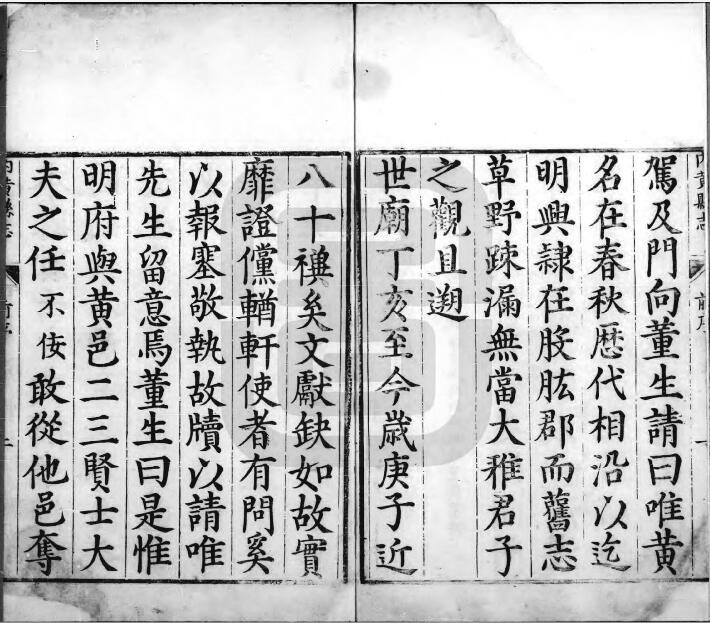 駕及門向董生請曰唯黃
名在春秋歷代相沿以迄
明興隷在股肱郡而舊志
草野踈漏無當大雅君子
之觀且遡
世廟丁亥至今歲庚子近
八十禩矣文獻缺如故實
靡證儻輶軒使者有問奚
以報塞敬執故牘以請唯
先生留意焉董生曰是惟
明府與黃邑二三賢士大
夫之任不佞敢從他邑奪
內黃縣志
前序